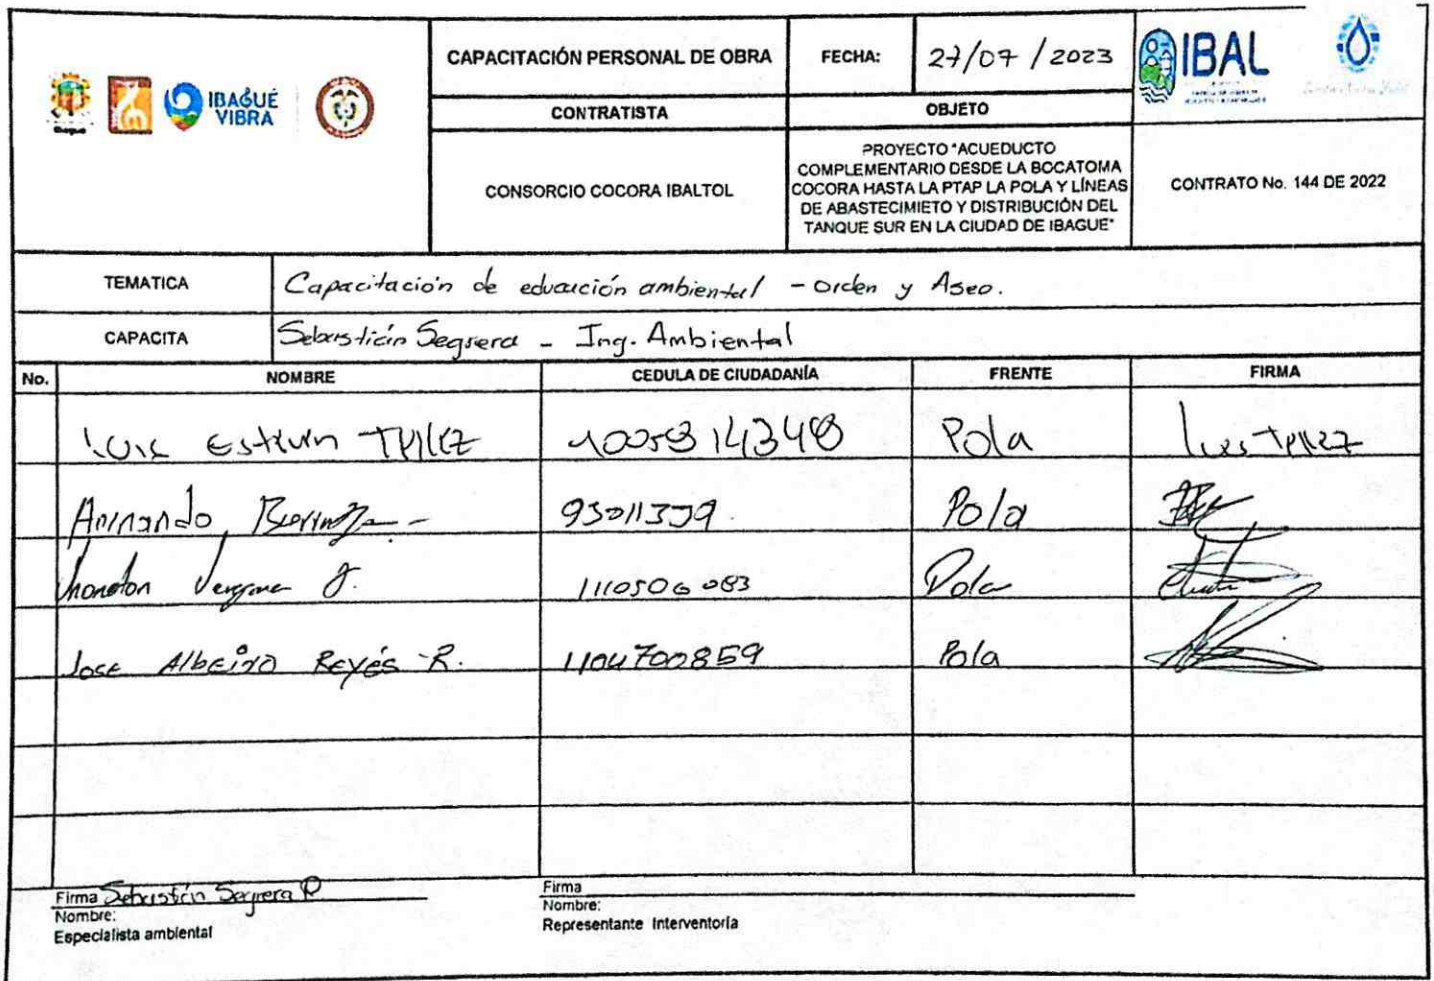 CAPACITACIÓN PERSONAL DE OBRA
FECHA:
27/07/2023
IBAL
IBAGUÉ
VIBRA
Ibague
CONTRATISTA
OBJETO
CONSORCIO COCORA IBALTOL
PROYECTO "ACUEDUCTO
COMPLEMENTARIO DESDE LA BOCATOMA
COCORA HASTA LA PTAP LA POLA Y LÍNEAS
DE ABASTECIMIETO Y DISTRIBUCIÓN DEL
TANQUE SUR EN LA CIUDAD DE IBAGUE"
CONTRATO No. 144 DE 2022
TEMATICA
Capacitación de educación ambiental - Orden y Aseo.
CAPACITA
Sebastián Segrera - Ing. Ambiental
No.
NOMBRE
CEDULA DE CIUDADANÍA
FRENTE
FIRMA
Luis Estivin Tellez
1005914348
Pola
Luis Tellez
Armando
93011339
Pola
Jhonaton Vergara J.
1110506083
Pola
Jose Albeiro Reyés R.
1104700859
Pola
Firma Sebastián Segrera P
Nombre:
Especialista ambiental
Firma
Nombre:
Representante Interventoría